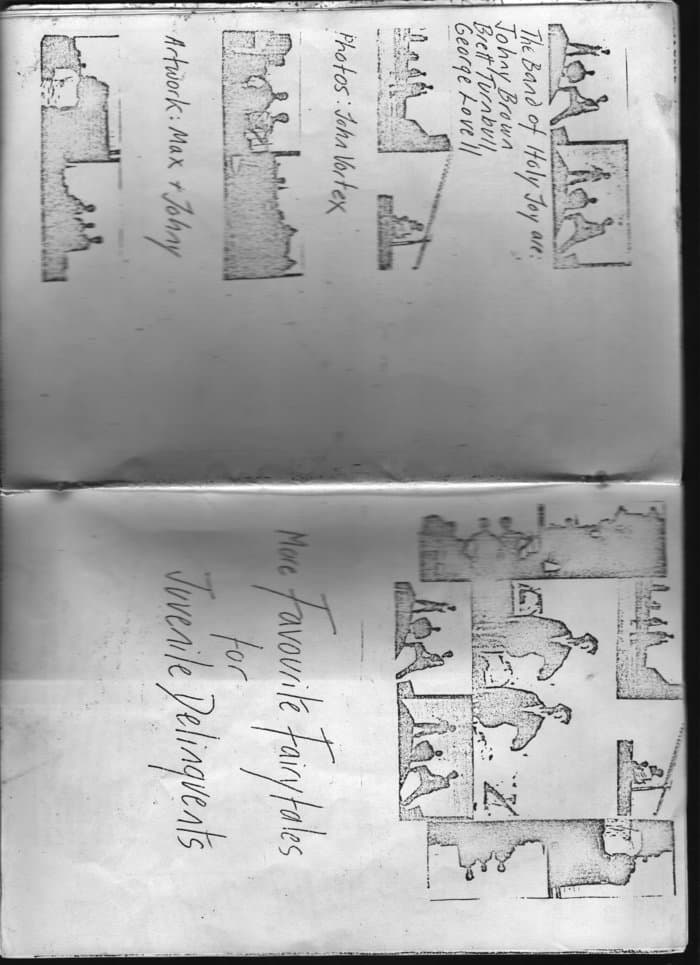 The Band of Holy Joy are:
Johny Brown
Brett Turnbull
George Lovell
Photos: John Vortex
Artwork: Max + Johny
More Favourite Fairytales
for
Juvenile Delinquents